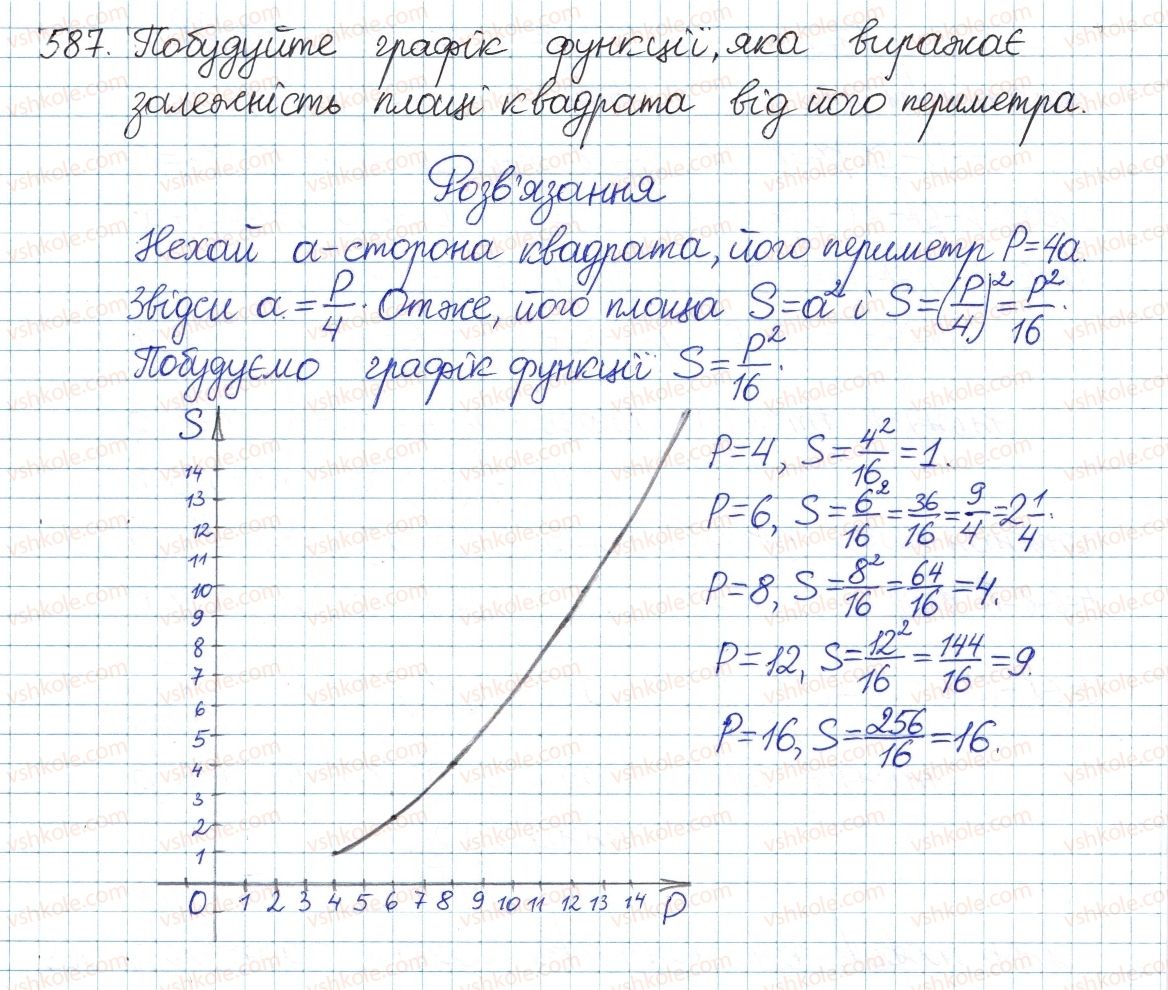 587. Побудуйте графік функції, яка виражає
залежність площі квадрата від його периметра.
Розв'язання
Нехай a - сторона квадрата, його периметр P=4a.
Звідси a = P/4. Отже, його площа S=a² і S=(P/4)²=P²/16.
Побудуємо графік функції S=P²/16.
S
14
13
12
11
10
9
8
7
6
5
4
3
2
1
0 1 2 3 4 5 6 7 8 9 10 11 12 13 14 P
P=4, S=4²/16=1.
P=6, S=6²/16=36/16=9/4=2 1/4.
P=8, S=8²/16=64/16=4.
P=12, S=12²/16=144/16=9.
P=16, S=256/16=16.
vshkole.com